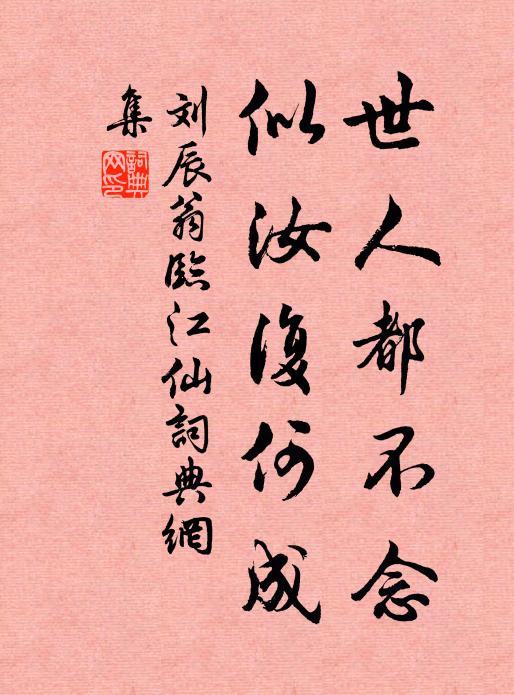 世人都不念
似汝復何成
刘辰翁臨江仙詞典網
集
詞典网印